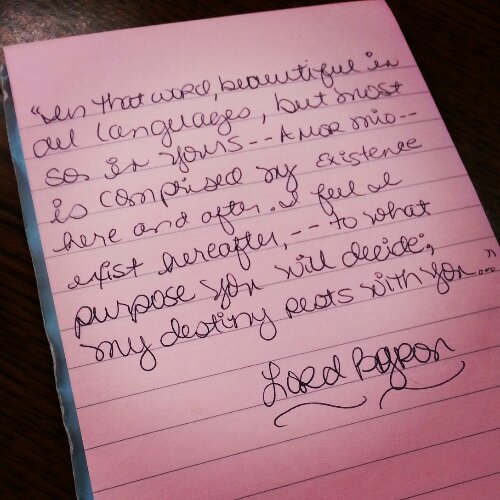 "In that word, beautiful in
all languages, but most
so in yours -- Amor mio --
is comprised my existence
here and after. I feel I
exist hereafter, -- to what
purpose you will decide;
my destiny rests with you..."
Lord Byron